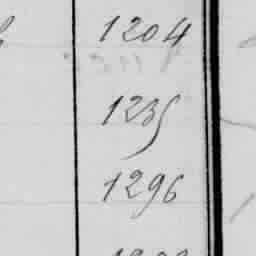 1204
1235
1296